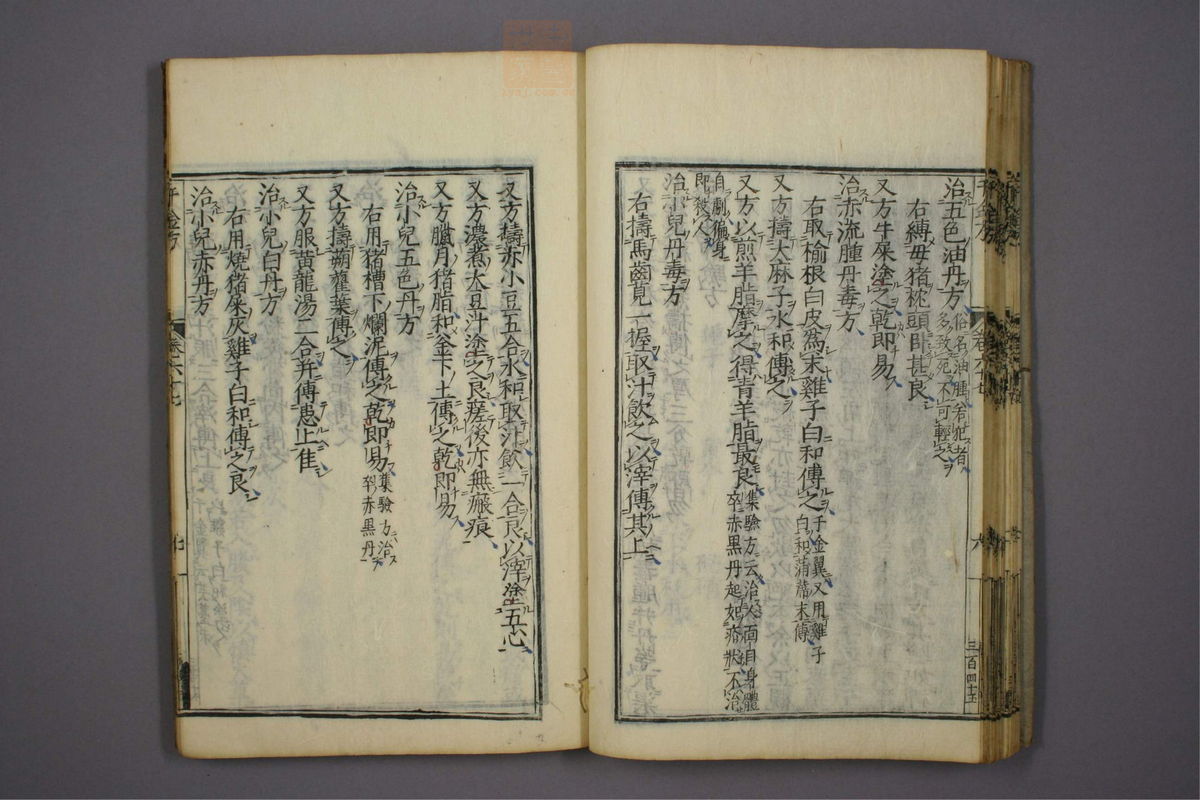 治五色油丹方俗名油腫若犯者多致死不可輕之
右縛母猪枕頭卧甚良
又方牛屎塗之乾即易
治赤流腫丹毒方
右取榆根白皮爲末雞子白和傅之千金翼又用雞子白和蒲蓆末傅
又方擣大麻子水和傅之
又方以煎羊脂摩之得青羊脂最良集驗方云治人面目身體卒赤黑丹起如疥狀不治
自劇徧身即殺人
治小兒丹毒方
右擣馬齒莧一握取汁飲之以滓傅其上
三百四十五
又方擣赤小豆五合水和取汁飲一合良以滓塗五心
又方濃煮大豆汁塗之良瘥後亦無瘢痕
又方臘月猪脂和釜下土傅之乾即易
治小兒五色丹方
右用猪槽下爛泥傅之乾即易集驗方治卒赤黑丹
又方擣蒴藋葉傅之
又方服黄龍湯二合并傅患上佳
治小兒白丹方
右用燒猪屎灰雞子白和傅之良
治小兒赤丹方
千金方
卷六十七